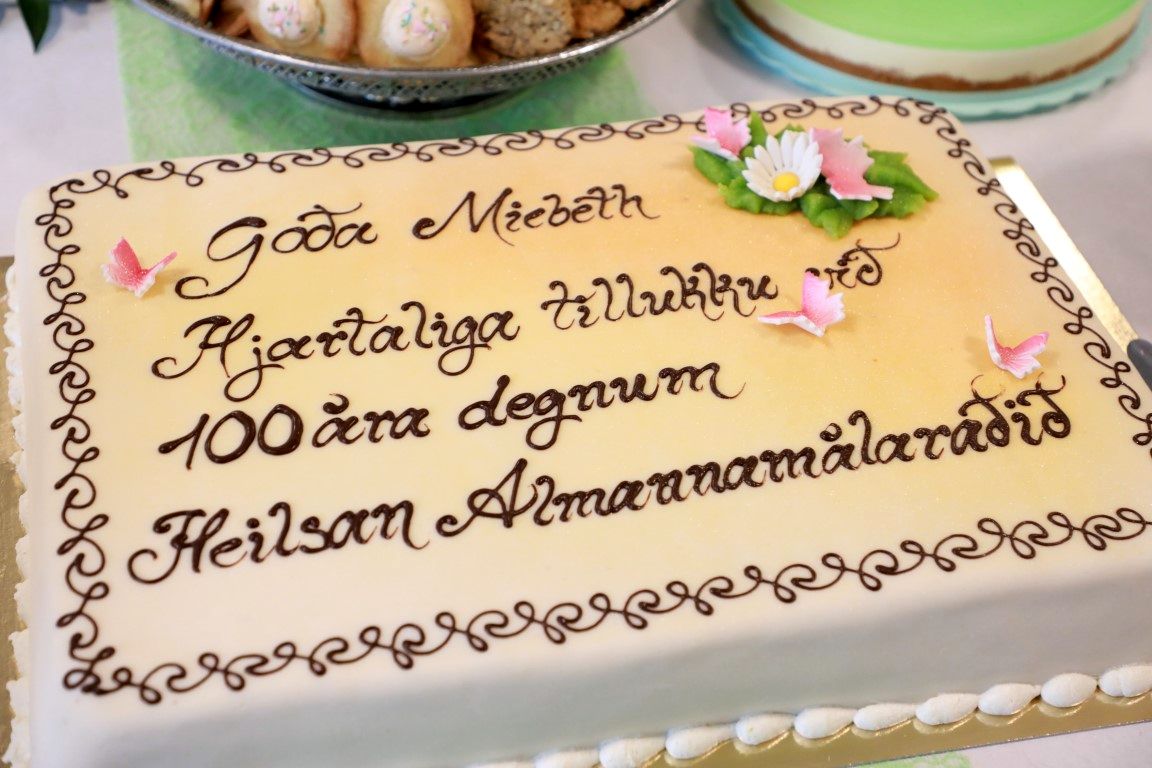 Góða Miebeth
Hjartaliga tillukku við
100 ára degnum
Heilsan Almannamálaráðið